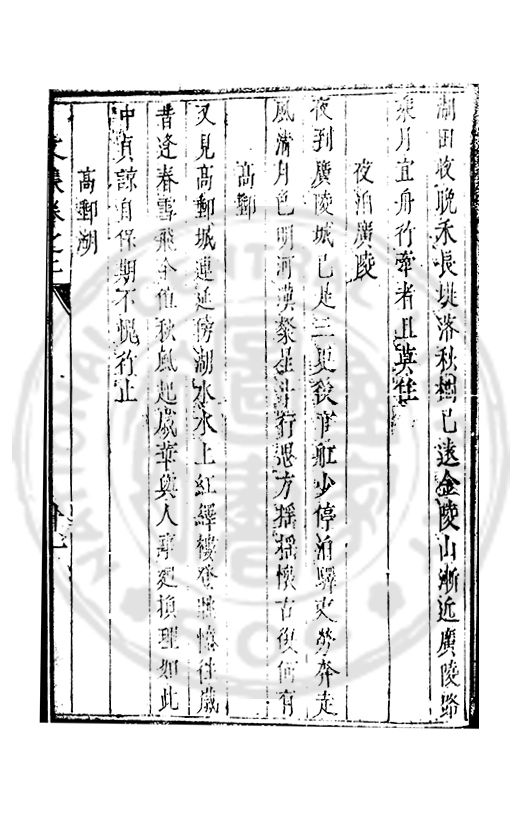 湖田收晚禾長堤落秋樹已遠金陵山漸近廣陵路
乘月宜舟行牽者且莫住
夜泊廣陵
夜到廣陵城已是三更後官舡少停泊驛吏勞奔走
風清月色明河漢聚星斗行思方摇摇懷古復何有
高郵
又見高郵城連延傍湖水水上紅繹樓登興懷往歲
昔逢春雪飛今值秋風起歲華與人事更換理如此
中貞諒自保期不愧行止
高郵湖
文集卷之二